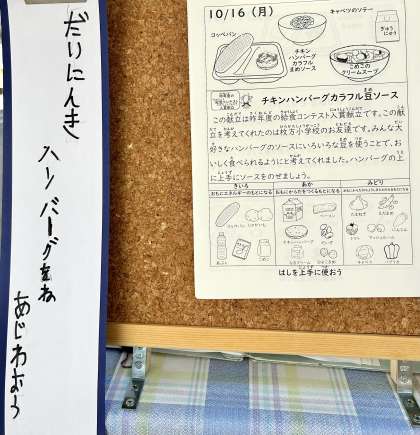 だいにんき
ハンバーグをね
あじわおう
10/16（月）
キャベツのソテー
ぎゅうにゅう
コッペパン
チキン
ハンバーグ
カラフル
まめソース
こめこの
クリームスープ
チキンハンバーグカラフル豆ソース
この献立は昨年度の給食コンテスト入賞献立です。この献
立を考えてくれたのは枚方小学校のお友達です。みんな大
好きなハンバーグのソースにいろいろな豆を使うことで、お
いしく食べられるようにと考えてくれました。ハンバーグの上
に上手にソースをのせましょう。
きいろ
あか
みどり
おもにエネルギーのもとになる
おもにからだをつくるもとになる
はしを上手に使おう